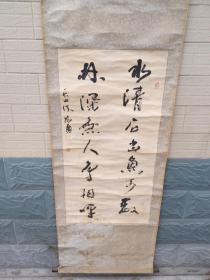 水清石出鱼可数
林深无人鸟相呼